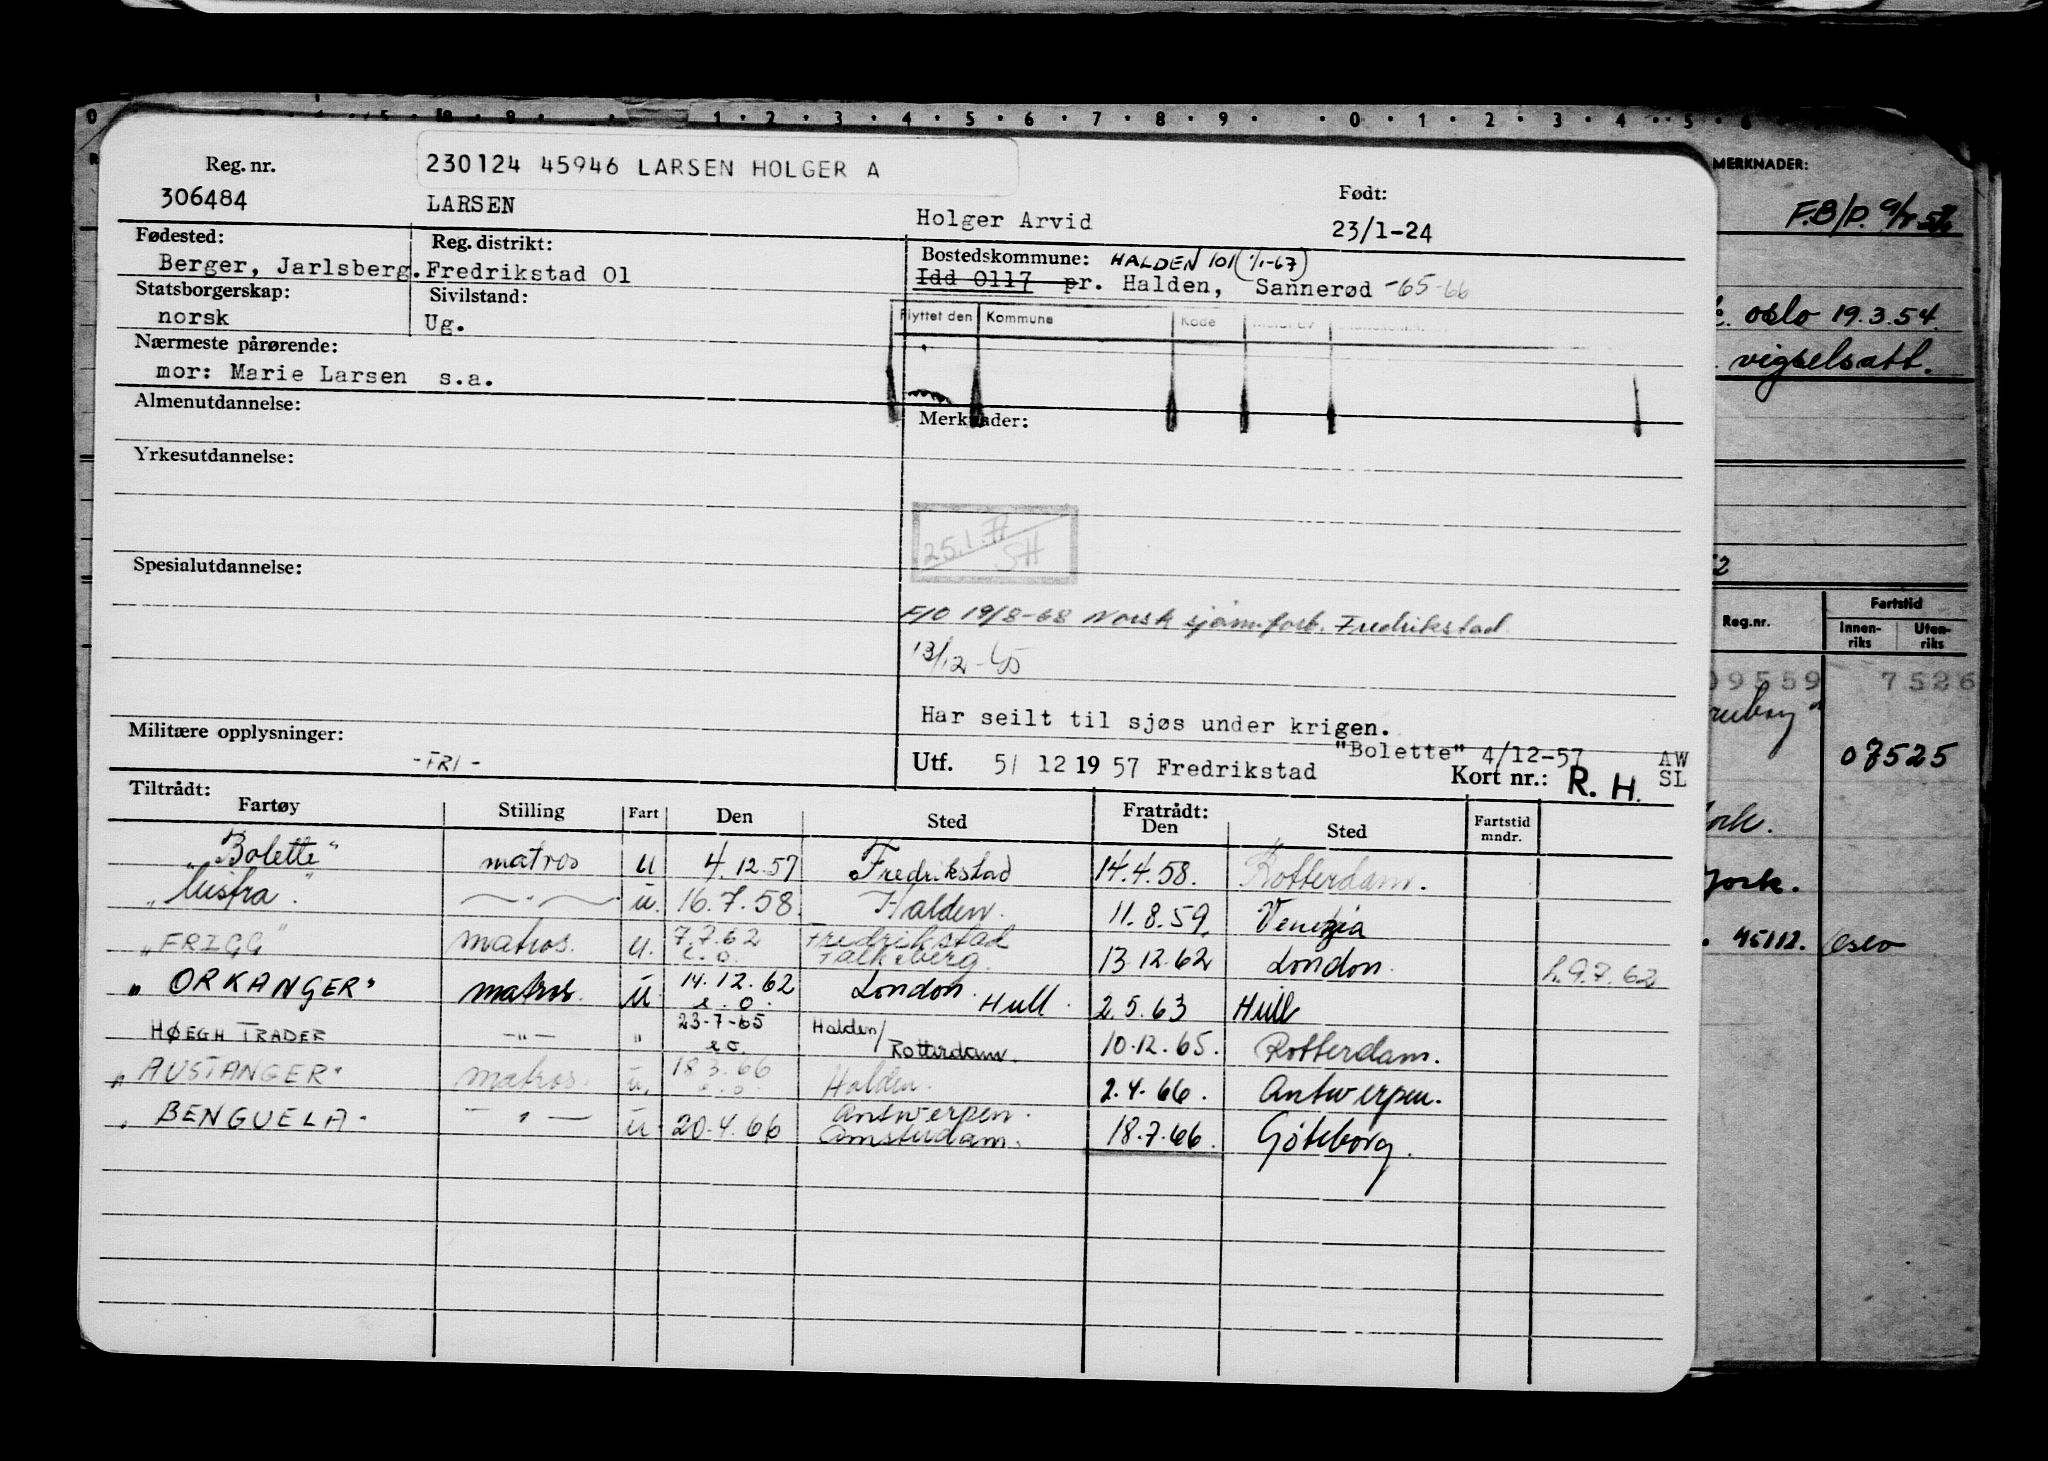 230124 45946 LARSEN HOLGER A
Reg. nr. Født:
306484 LARSEN Holger Arvid 23/1-24
Fødested: Reg. distrikt: Bostedskommune: HALDEN 101 (1/1-67)
Berger, Jarlsberg. Fredrikstad 01 Idd 0117 pr. Halden, Sannerød -65-66
Statsborgerskap: Sivilstand:
norsk Ug.
Flyttet den Kommune Kode
Nærmeste pårørende:
mor: Marie Larsen s.a.
Almenutdannelse: Merknader:
Yrkesutdannelse:
25.1.71
SH
Spesialutdannelse:
F/O 19/8-68 Norsk sjøm.forb. Fredrikstad
13/12-65
Har seilt til sjøs under krigen.
Militære opplysninger: "Bolette" 4/12-57 AW
-FRI- Utf. 5/ 12 1957 Fredrikstad Kort nr.: R. H. SL
Tiltrådt: Fratrådt:
Fartøy Stilling Fart Den Sted Den Sted Fartstid mndr.
"Bolette" matros u 4.12.57 Fredrikstad 14.4.58. Rotterdam.
u. 16.7.58. Halden. 11.8.59. Venezia
"FRIGG" matros. u. 7.7.62 Fredrikstad 13.12.62 London. h. 9.7.62
e.o. Falkeberg.
"ORKANGER" matros. u. 14.12.62 London. Hull. 2.5.63 Hull
e.o.
HØEGH TRADER -"- " 23-7-65 Halden/ Rotterdam. 10.12.65. Rotterdam.
e.o.
"AUSTANGER" matros. u. 18.3.66 Halden. 2.4.66. Antwerpen.
e.o.
"BENGUELA" -"- u. 20.4.66 Antwerpen. 18.7.66. Göteborg.
Amsterdam.
MERKNADER:
F.B/P.
oslo 19.3.54.
vigselsatt.
Fartstid
Reg.nr. Innen-riks Uten-riks
09559 7526
07525
York.
York.
45112. Oslo